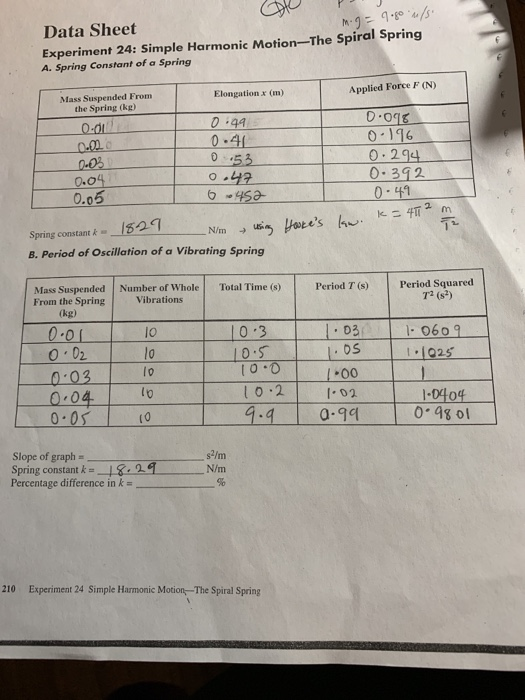 m·g = 9.80 m/s²
Data Sheet
Experiment 24: Simple Harmonic Motion—The Spiral Spring
A. Spring Constant of a Spring
Mass Suspended From the Spring (kg) Elongation x (m) Applied Force F (N)
0.01 0.49 0.098
0.02 0.41 0.196
0.03 0.53 0.294
0.04 0.47 0.392
0.05 0.452 0.49
Spring constant k = 18.29 N/m → using Hooke's law. k = 4π² m/T²
B. Period of Oscillation of a Vibrating Spring
Mass Suspended From the Spring (kg) Number of Whole Vibrations Total Time (s) Period T (s) Period Squared T² (s²)
0.01 10 10.3 1.03 1.0609
0.02 10 10.5 1.05 1.1025
0.03 10 10.0 1.00 1
0.04 10 10.2 1.02 1.0404
0.05 10 9.9 0.99 0.9801
Slope of graph = s²/m
Spring constant k = 18.29 N/m
Percentage difference in k = %
210 Experiment 24 Simple Harmonic Motion—The Spiral Spring